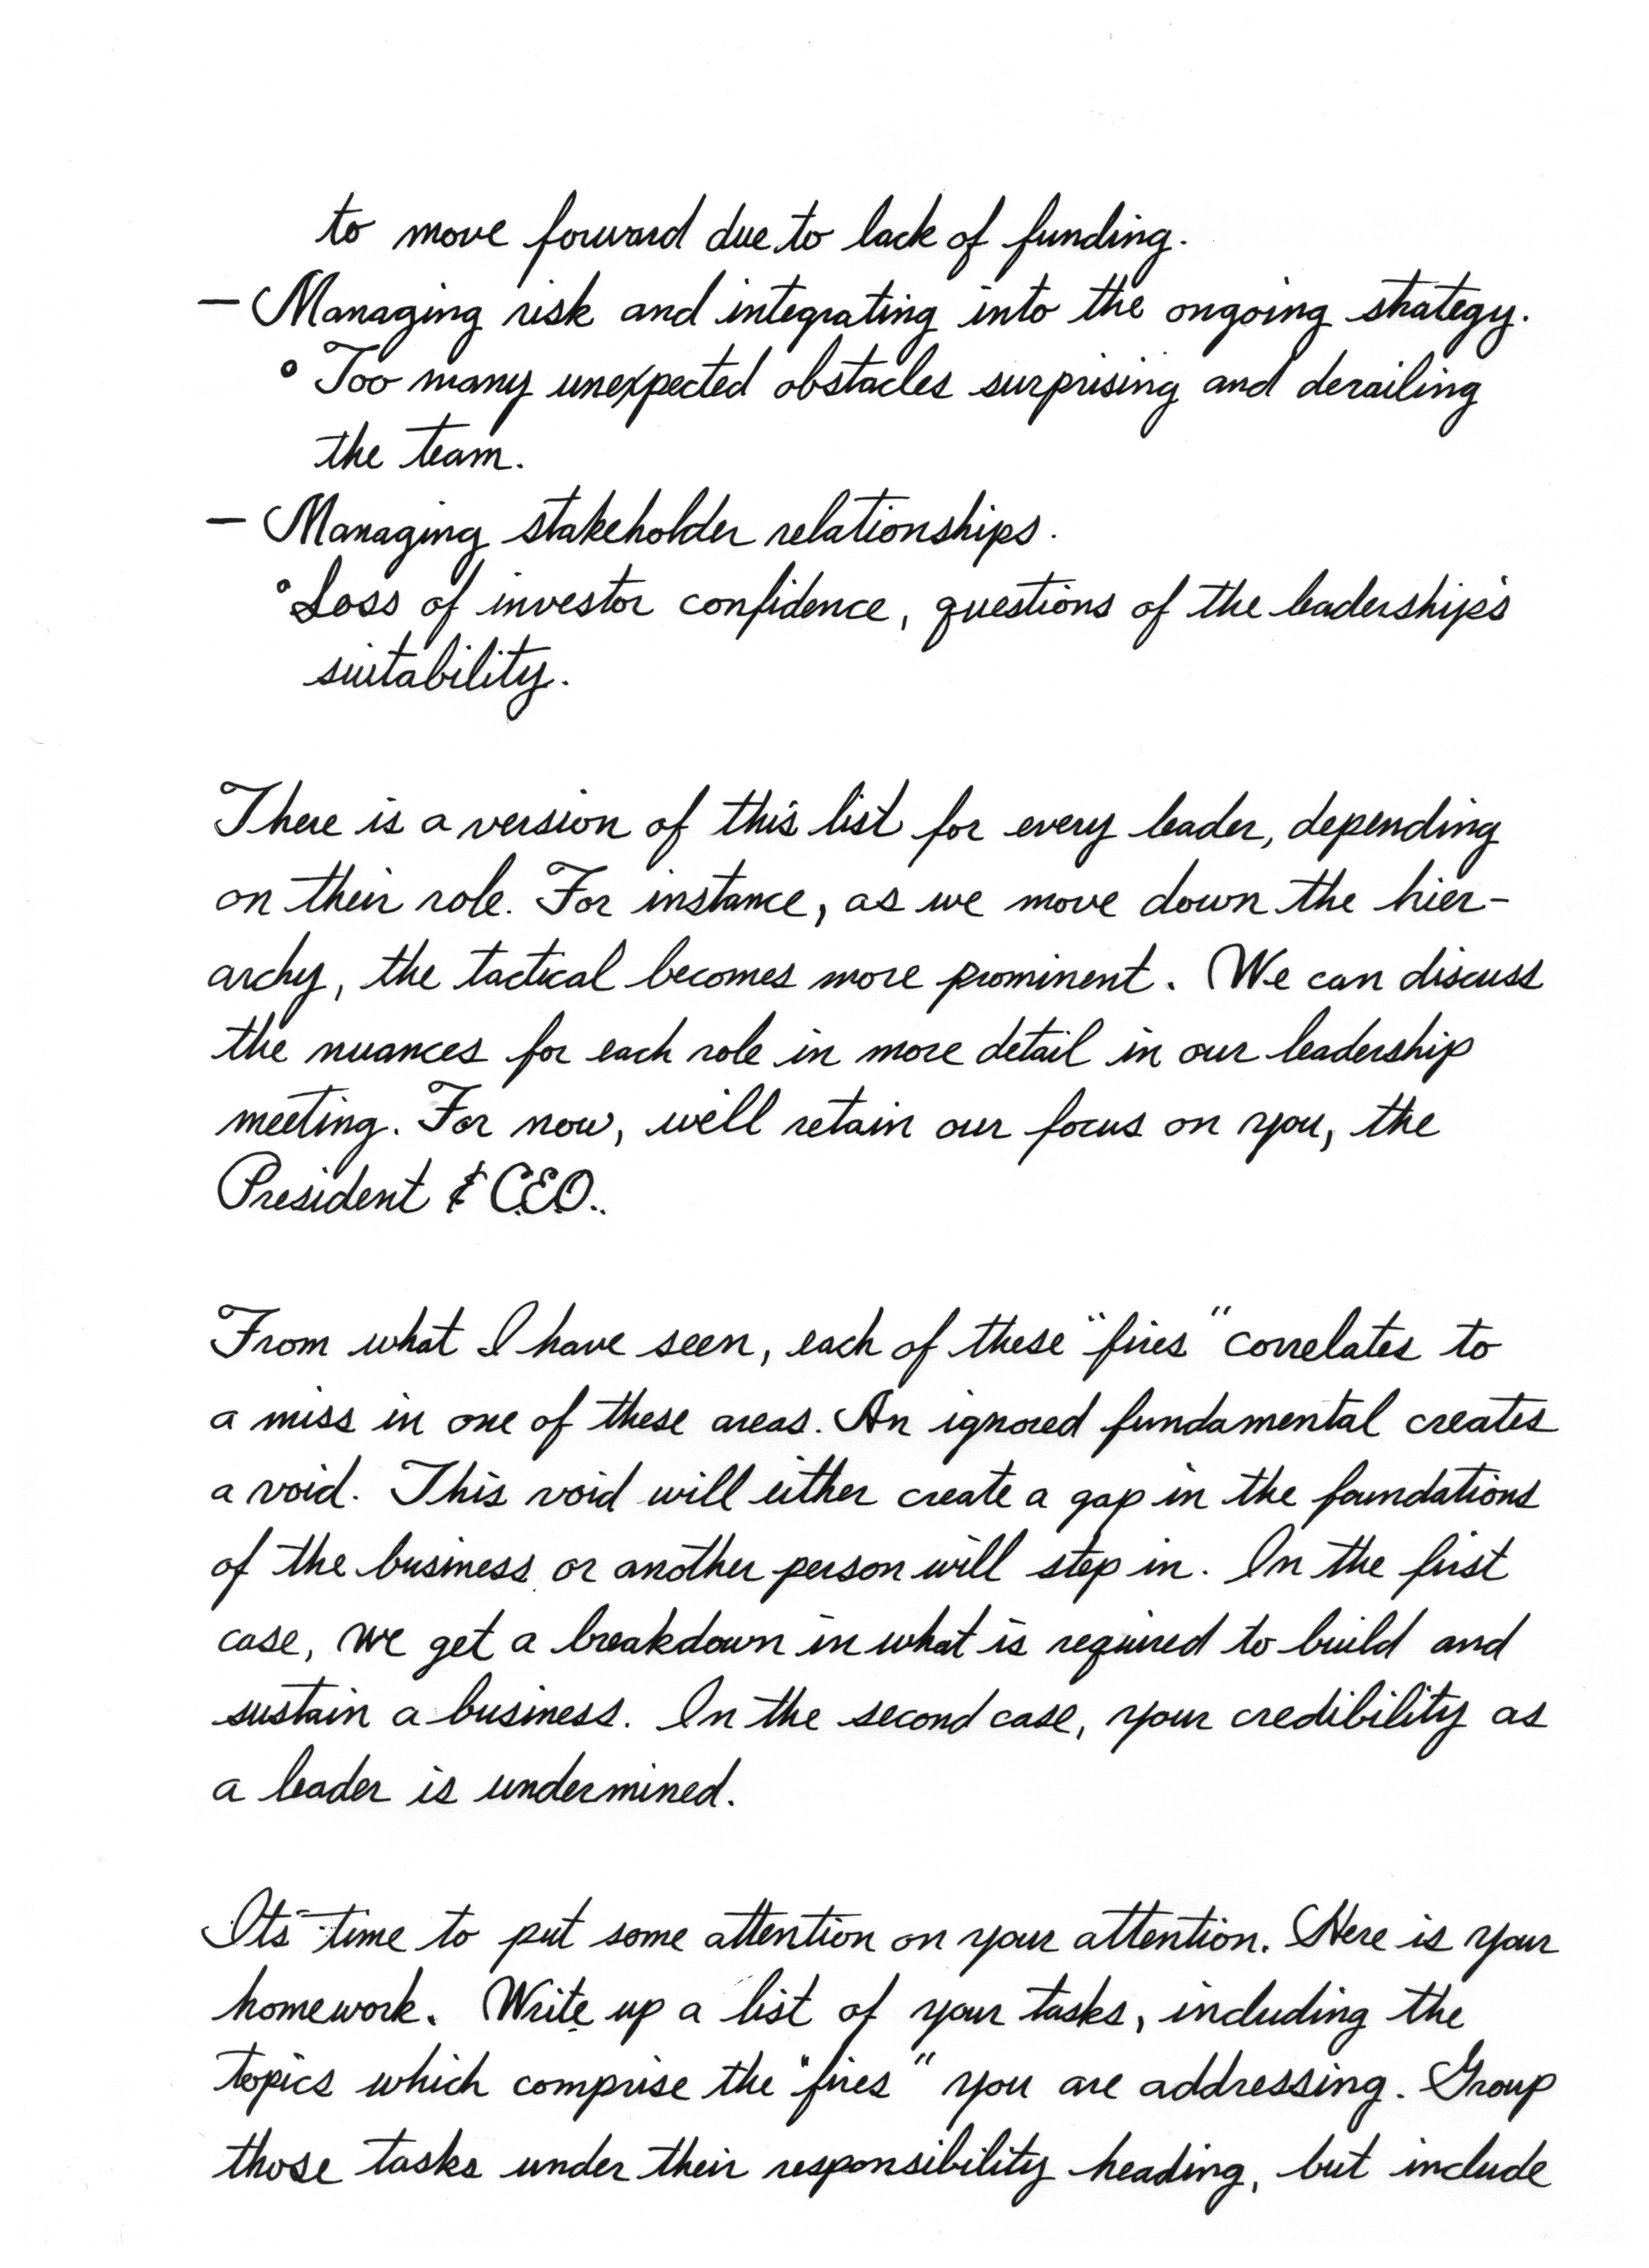 to move forward due to lack of funding.
– Managing risk and integrating into the ongoing strategy.
° Too many unexpected obstacles surprising and derailing
the team.
– Managing stakeholder relationships.
° Loss of investor confidence, questions of the leadership's
suitability.
There is a version of this list for every leader, depending
on their role. For instance, as we move down the hier-
archy, the tactical becomes more prominent. We can discuss
the nuances for each role in more detail in our leadership
meeting. For now, we'll retain our focus on you, the
President & C.E.O..
From what I have seen, each of these "fires" correlates to
a miss in one of these areas. An ignored fundamental creates
a void. This void will either create a gap in the foundations
of the business or another person will step in. In the first
case, we get a breakdown in what is required to build and
sustain a business. In the second case, your credibility as
a leader is undermined.
It's time to put some attention on your attention. Here is your
homework. Write up a list of your tasks, including the
topics which comprise the "fires" you are addressing. Group
those tasks under their responsibility heading, but include